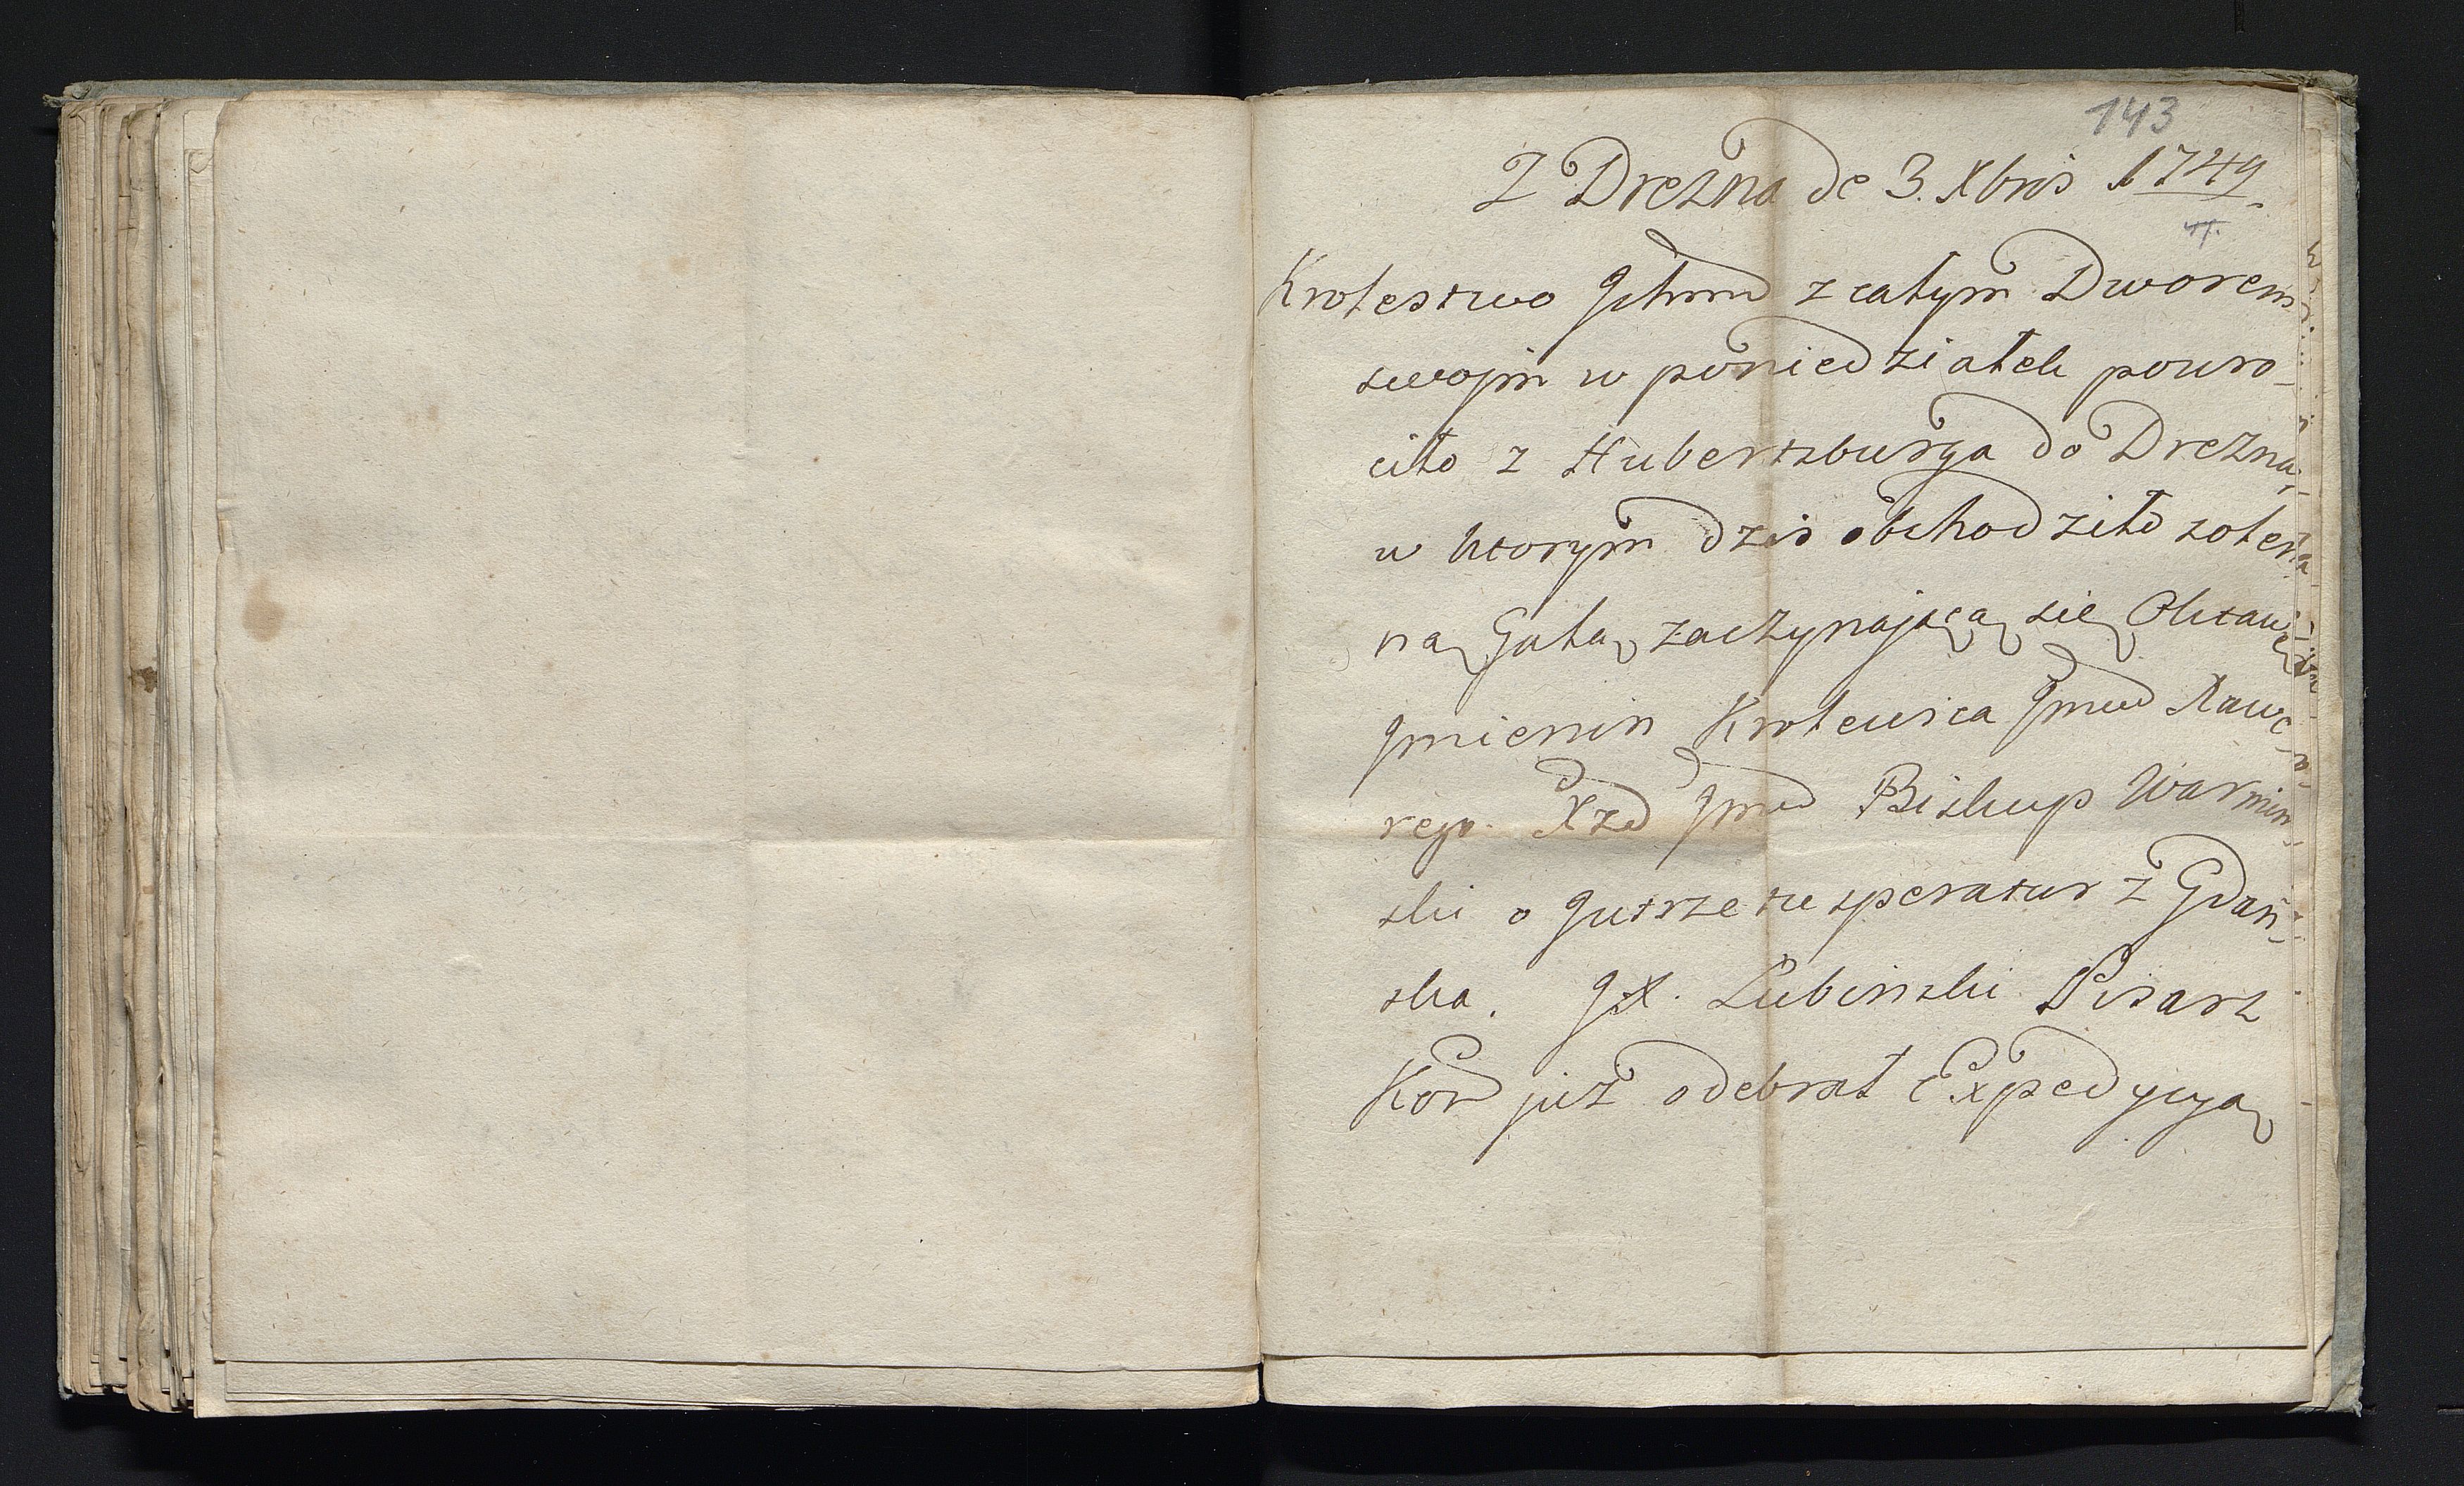 143
Z Drezna de 3. Xbris 1749.
Krolestwo Ichmć z całym Dworem
swojm w poniedziałek powro-
ciło z Hubertzburga do Drezna,
w ktorym dzis obchodziło solen-
ną Galą zaczynającą się Oktawę
Jmienin Krolewica Jmći Xawe-
rego. Xże Jmć Biskup Warmin-
ski o Jutrze tu speratur z Gdań-
ska. JX. Łubinski Pisarz
Kor już odebrał Expedycyą